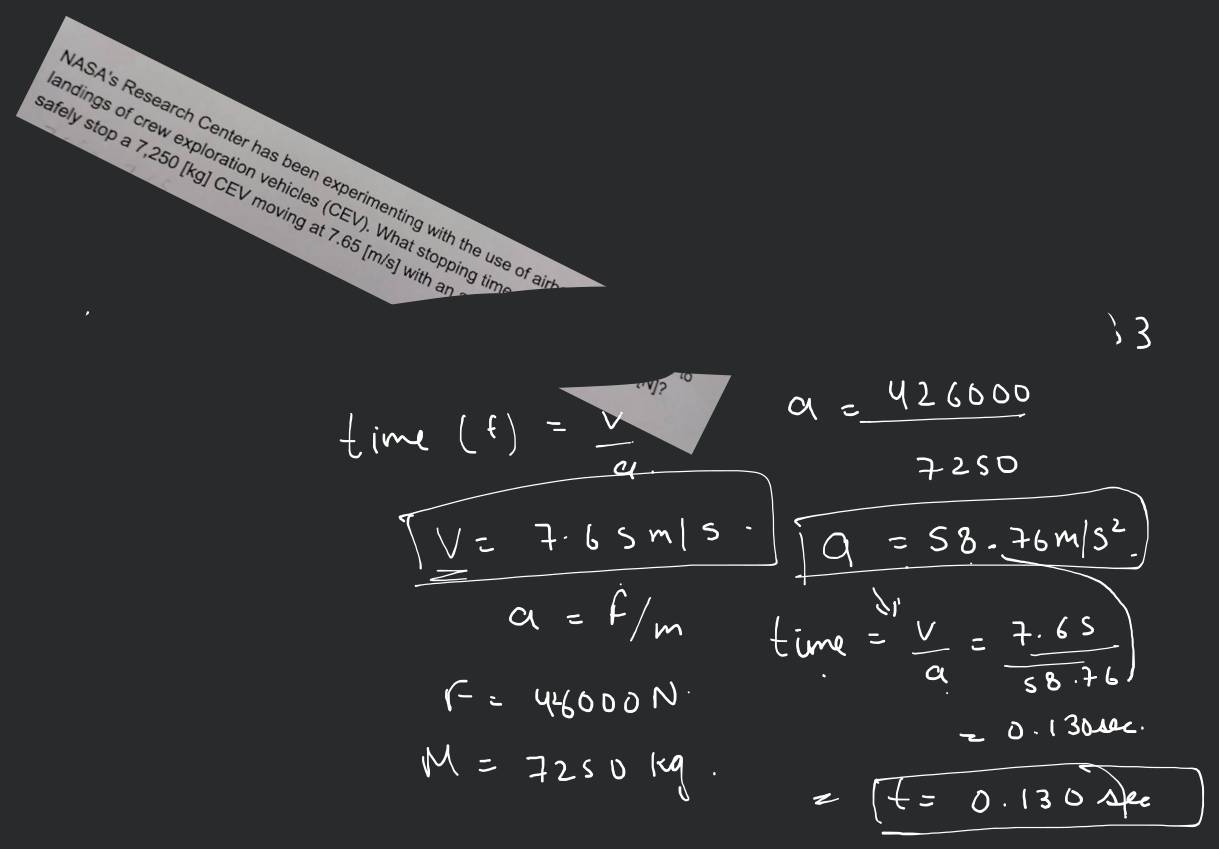 NASA's Research Center has been experimenting with the use of airb
landings of crew exploration vehicles (CEV). What stopping time
safely stop a 7,250 [kg] CEV moving at 7.65 [m/s] with an
to
[N]?
3
time (t) = v/a.
V = 7.65 m/s.
a = f/m
F = 426000 N.
M = 7250 kg.
a = 426000/7250
a = 58.76 m/s².
time = v/a = 7.65/58.76
= 0.130 sec.
= t = 0.130 sec